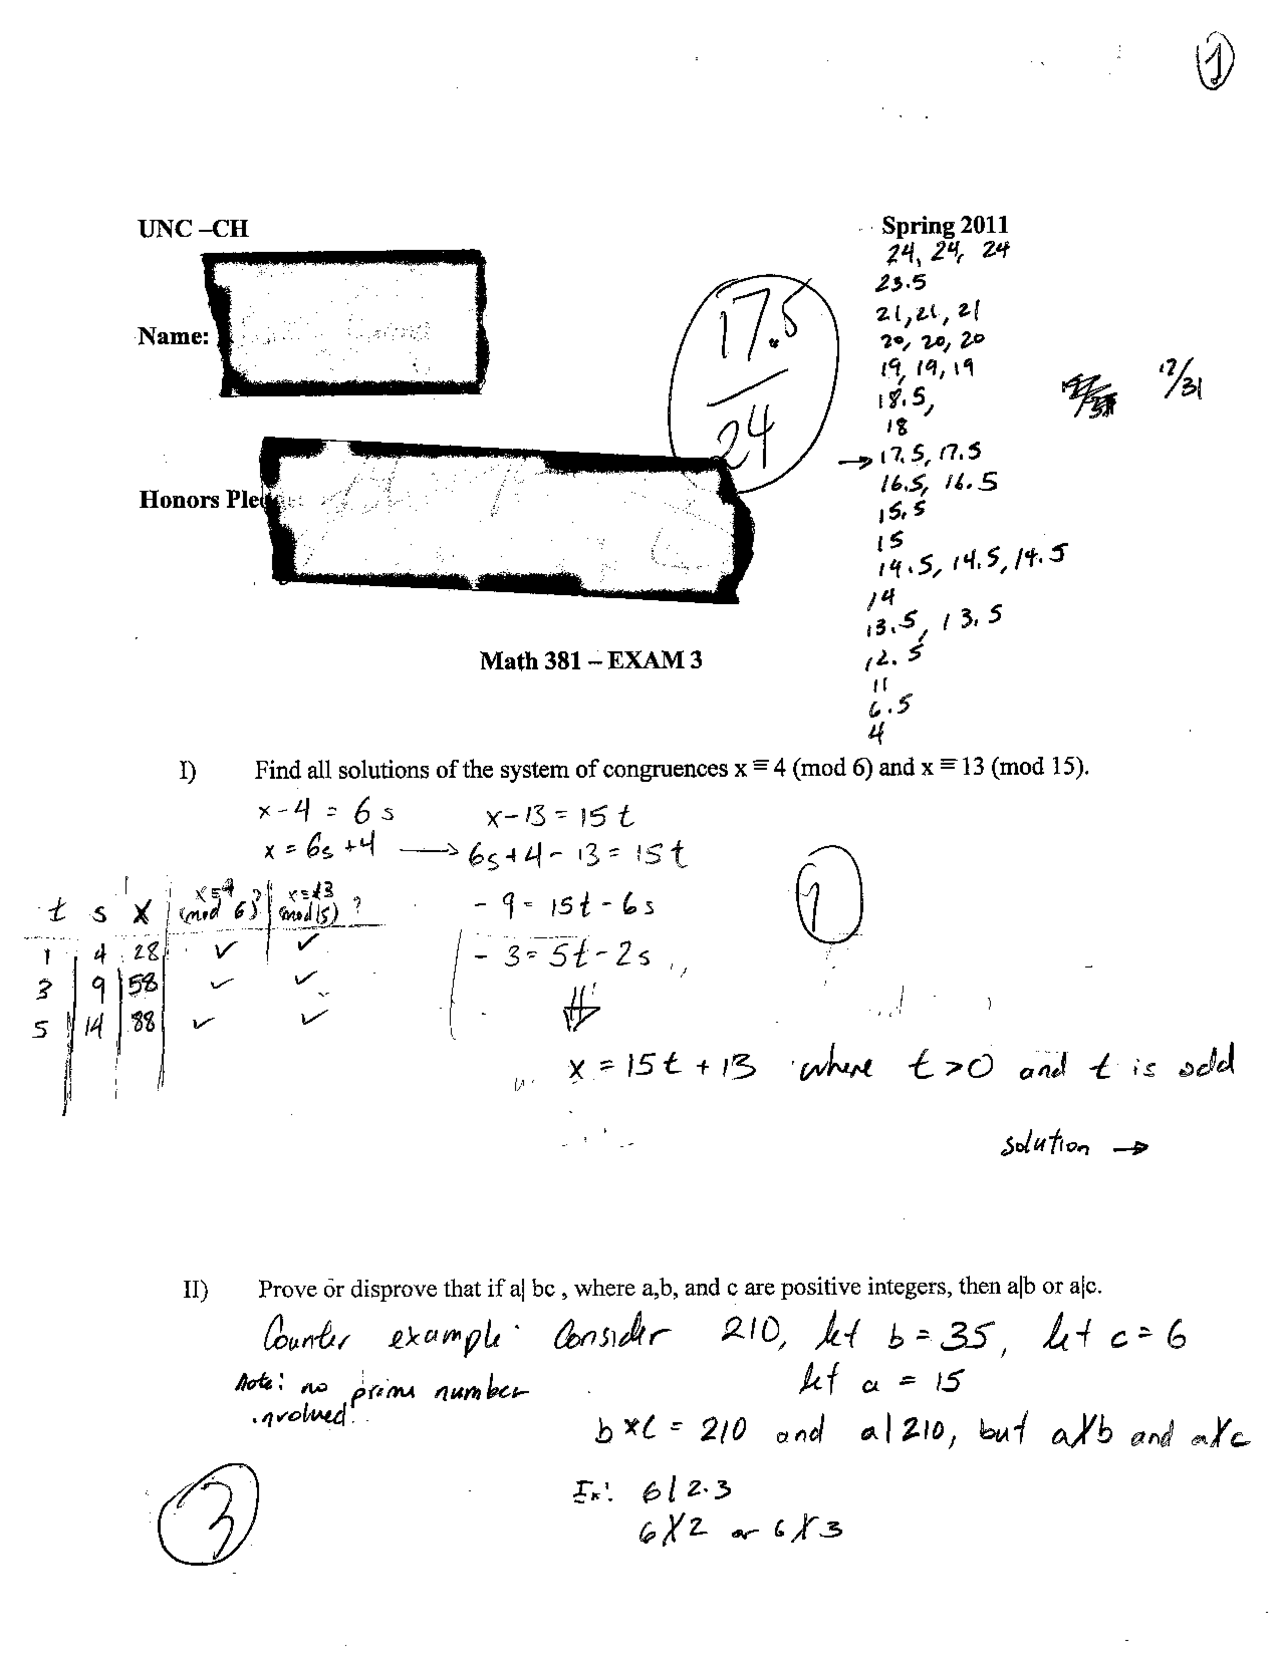 1
UNC –CH
Spring 2011
24, 24, 24
23.5
21, 21, 21
Name:
17.5
24
20, 20, 20
19, 19, 19
17/31
18.5,
18
→17.5, 17.5
16.5, 16.5
Honors Ple
15.5
15
14.5, 14.5, 14.5
14
13.5, 13.5
Math 381 – EXAM 3
12.5
11
6.5
4
I) Find all solutions of the system of congruences x ≡ 4 (mod 6) and x ≡ 13 (mod 15).
x-4 = 6s x-13 = 15t
x = 6s+4 → 6s+4-13 = 15t
t s x x≡4 (mod 6)? x≡13 (mod 15)?
-9 = 15t-6s
1
1 4 28 ✓ ✓
-3 = 5t-2s
3 9 58 ✓ ✓
5 14 88 ✓ ✓
x = 15t + 13 where t>0 and t is odd
solution →
II) Prove or disprove that if a| bc , where a,b, and c are positive integers, then a|b or a|c.
Counter example: Consider 210, let b = 35, let c = 6
let a = 15
Note: no prime number
involved.
b*c = 210 and a|210, but a∤b and a∤c
3
Ex: 6|2·3
6∤2 or 6∤3